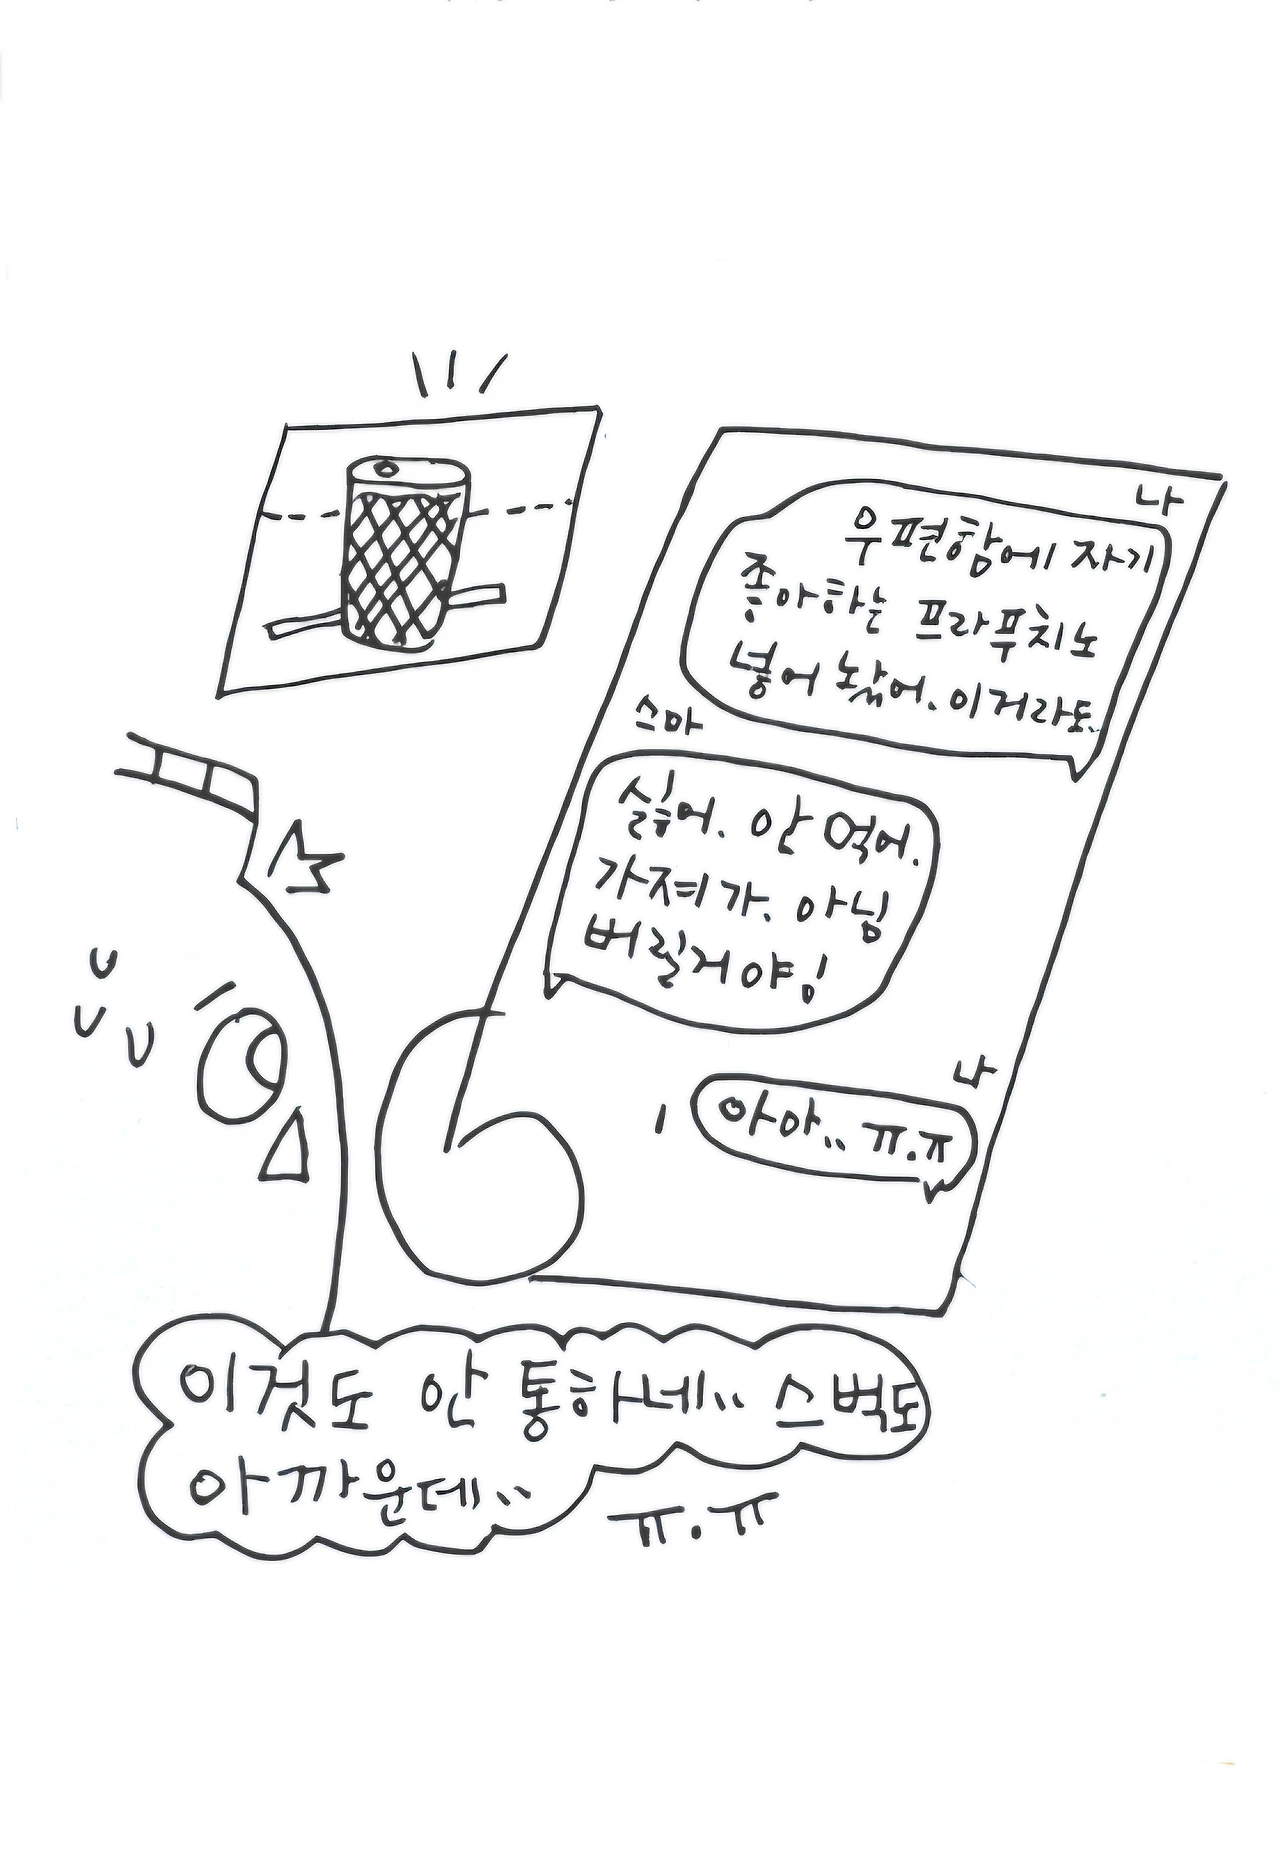 나
우편함에 자기
좋아하는 프라푸치노
넣어 놨어. 이거라도..
스마
싫어. 안 먹어.
가져가. 아님
버릴거야!
나
아아.. ㅠ.ㅠ
이것도 안 통하네.. 스벅도
아까운데..
ㅠ.ㅠ